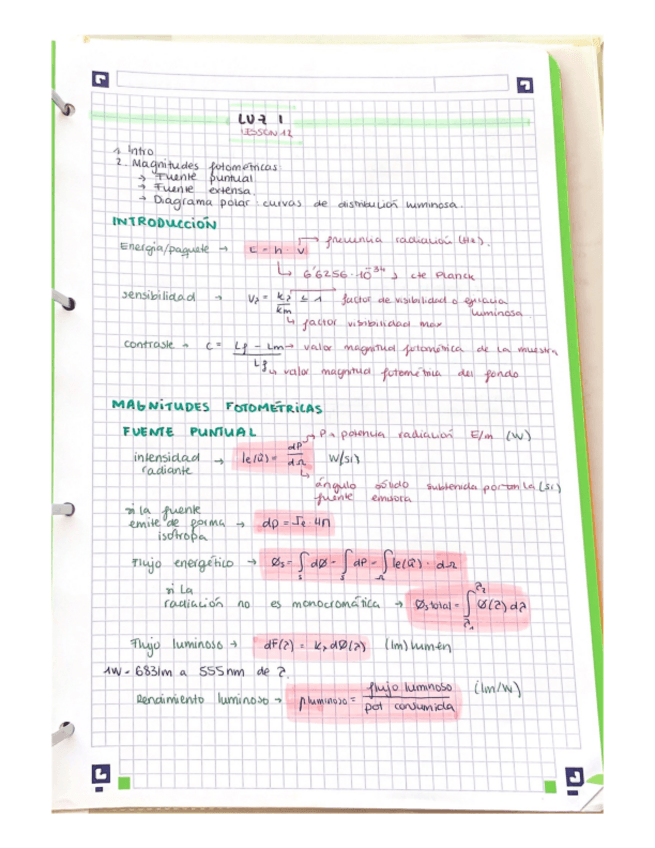 LUZ 1
LESSON 12
1. Intro
2. Magnitudes fotométricas:
→ Fuente puntual
→ Fuente extensa.
→ Diagrama polar: curvas de distribución luminosa.
INTRODUCCIÓN
Energía/paquete → ε = h · ν → frecuencia radiación (Hz).
↳ 6'6256·10⁻³⁴ J cte Planck
sensibilidad → Vλ = kλ/km ≤ 1 factor de visibilidad o eficacia luminosa
↳ factor visibilidad max
contraste → C = (Lf - Lm)/Lf → valor magnitud fotométrica de la muestra
↳ valor magnitud fotométrica del fondo
MAGNITUDES FOTOMÉTRICAS
FUENTE PUNTUAL → P = potencia radiación E/m (W)
intensidad radiante → Ie(Ω) = dP/dΩ W(sr)
↳ ángulo sólido subtendida por un la (sr)
fuente emisora
si la fuente
emite de forma → dP = Ie · 4π
isotropa
Flujo energético → Øs = ∫s dØ = ∫s dP = ∫Ω Ie(Ω) · dΩ
si la
radiación no es monocromática → Øs total = ∫λ₁^λ₂ Ø(λ) dλ
Flujo luminoso → dF(λ) = Kλ dØ(λ) (lm) lumen
1W = 683lm a 555nm de λ.
Rendimiento luminoso → ρ luminoso = flujo luminoso/pot consumida (lm/W)